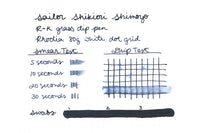 Sailor Shikiori Shimoyo
R-K glass dip pen
Rhodia 80g white dot grid
Smear Test Drip Test
5 seconds
10 seconds
20 seconds
30 seconds
swabs 1 2 3